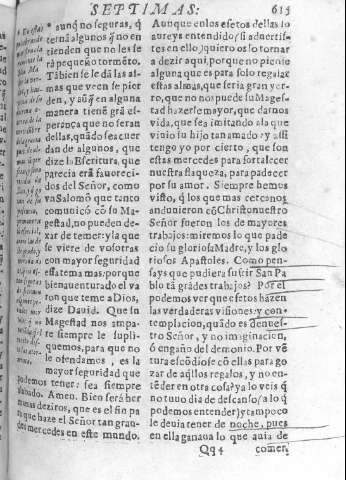 SEPTIMAS. 615
* aunq̃ no seguras, q̃
ternã algunos q̃ no en
tienden que no les se
rà pequeño tormẽto.
Tãbien se le dà las al-
mas que veen se pier
den, y aũq̃ en alguna
manera tiene grã es-
perança que no seran
dellas, quãdo se acuer
dan de algunos, que
dize la Escritura, que
parecia erã fauoreci-
dos del Señor, como
vn Salomõ que tanto
comunicò cõ su Ma-
gestad, no pueden de-
xar de temer: y la que
se viere de vosotras
con mayor seguridad
essa tema mas: porque
bienauenturado el va
ron que teme a Dios,
dize Dauid. Que su
Magestad nos ampa-
re siempre le supli-
quemos, para que no
le ofendamos, es la
mayor seguridad que
podemos tener: sea siempre
alabado. Amen. Bien serà her
manas deziros, que es el fin pa
ra que haze el Señor tan gran-
des mercedes en este mundo.
Aunque en los efetos dellas lo
aureys entendido, si aduertis-
tes en ello, quiero os lo tornar
a dezir aqui, porque no piense
alguna que es para solo regalar
estas almas, que seria gran yer-
ro, que no nos puede su Mages-
tad hazerle mayor, que darnos
vida, que sea imitando a la que
viuio su hijo tan amado: y assi
tengo yo por cierto, que son
estas mercedes para fortalecer
nuestra flaqueza, para padecer
por su amor. Siempre hemos
visto, q̃ los que mas cercanos
anduuieron cõ Christo nuestro
Señor fueron los de mayores
trabajos: miremos lo que pade
cio su gloriosa Madre, y los glo
riosos Apostoles. Como pen-
says que pudiera sufrir San Pa
blo tã grãdes trabajos? Por el
podemos ver que efetos hazen
las verdaderas visiones: y con-
templacion, quãdo es de nues-
tro Señor, y no imaginacion,
ò engaño del demonio. Por vẽ
tura escõdiose cõ ellas para go
zar de aq̃llos regalos, y no en-
tẽder en otra cosa? ya lo veis q̃
no tuuo dia de descanso (a lo q̃
podemos entender) y tampoco
le deuia tener de noche, pues
en ella ganaua lo que auia de
Qq4 comer.